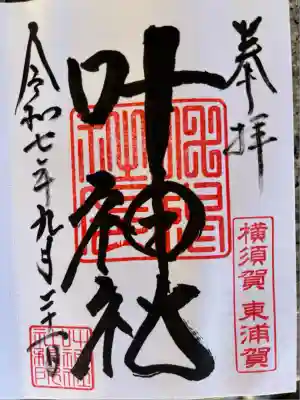 奉拝
横須賀 東浦賀
叶神社
令和七年九月二十一日